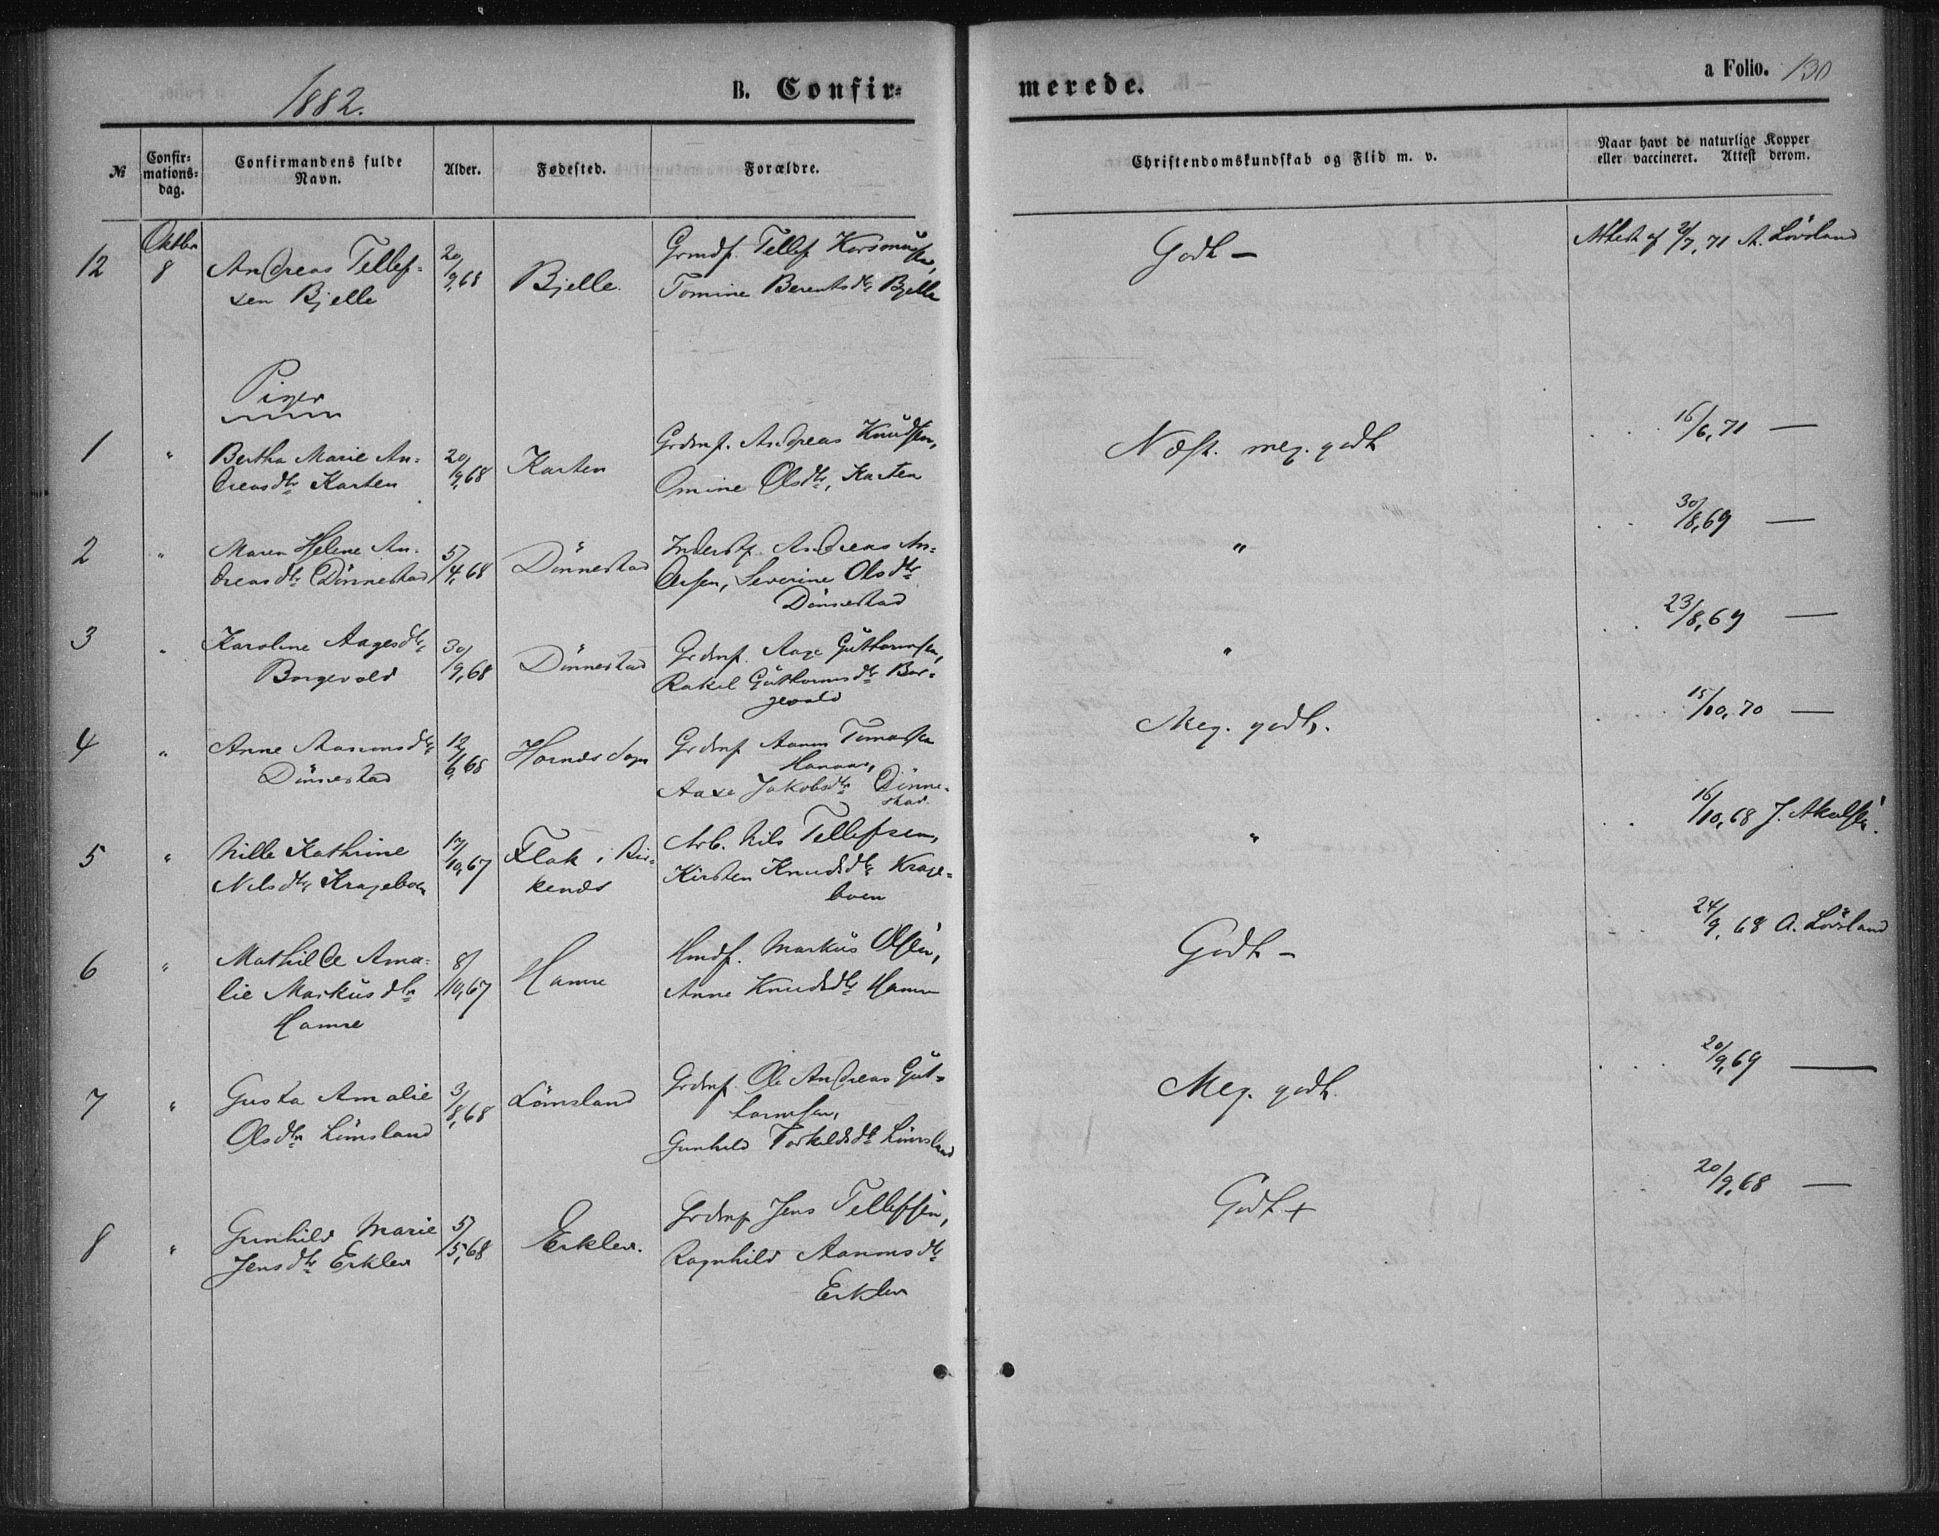 1882.
B. Confir-
merede.
a Folio. 130
№
Confir-
mations-
dag.
Confirmandens fulde
Navn.
Alder.
Fødested.
Forældre.
Christendomskundskab og Flid m. v.
Naar havt de naturlige Kopper
eller vaccineret. Attest derom.
12
Oktbr
8
Andreas Tellef-
sen Bjelle
20/9,68
Bjelle.
Grmdf. Tellef
Tomine Berentsdtr Bjelle
Godt –
Attest af 2/7,71 A. Lövsland
Piger
1
"
Bertha Marie An-
dreasdtr Karten
20/9,68
Karten
Grdmf. Andreas Knudsen,
Omine Olsdtr, Karten
Næst. meg. godt
. . . 16/6,71 —
2
"
Maren Helene An-
dreasdtr Dönnestad
5/4,68
Dönnestad
Inderstf. Andreas An-
dersen, Severine Olsdtr
Dönnestad
"
. . . 30/8,69 —
3
"
Karoline Aagesdtr
Borgevold
30/9,68
Dönnestad
Grdmf. Aage Guthormsen,
Rakel Guthormsdtr Bor-
gevold
"
. . . 23/8,69 —
4
"
Anne Aanonsdtr
Dönnestad
12/6,68
Hornes Sogn
Grdmf Aanon Tomassen
Aase Jakobsdtr Dönne-
stad
Meg. godt.
. . . 15/10,70 —
5
"
Nille Kathrine
Nilsdtr Krageboen
17/10,67
Flak i Bir-
kenes
Arb. Nils Tellefsen,
Kirsten Knudsdtr Krage-
boen
"
. . . 16/10,68 J. Akselsen.
6
"
Mathilde Ama-
lie Markusdtr
Hamre
8/10,67
Hamre
Hmdf. Markus Olsen,
Anne Knudsdtr Hamre
Godt –
. . . 24/9,68 A. Lövsland
7
"
Gusta Amalie
Olsdtr Lömsland
3/8,68
Lömsland
Grdmf. Ole Andreas Gut-
tormsen,
Gunhild Torkildsdtr Lömsland
Meg. godt.
. . . 20/9,69 —
8
"
Gunhild Marie
Jensdtr Erklev
5/5,68
Erklev.
Grdmf Jens Tellefsen,
Ragnhild Aanonsdtr
Erklev
Godt +
. . . 20/9,68 —